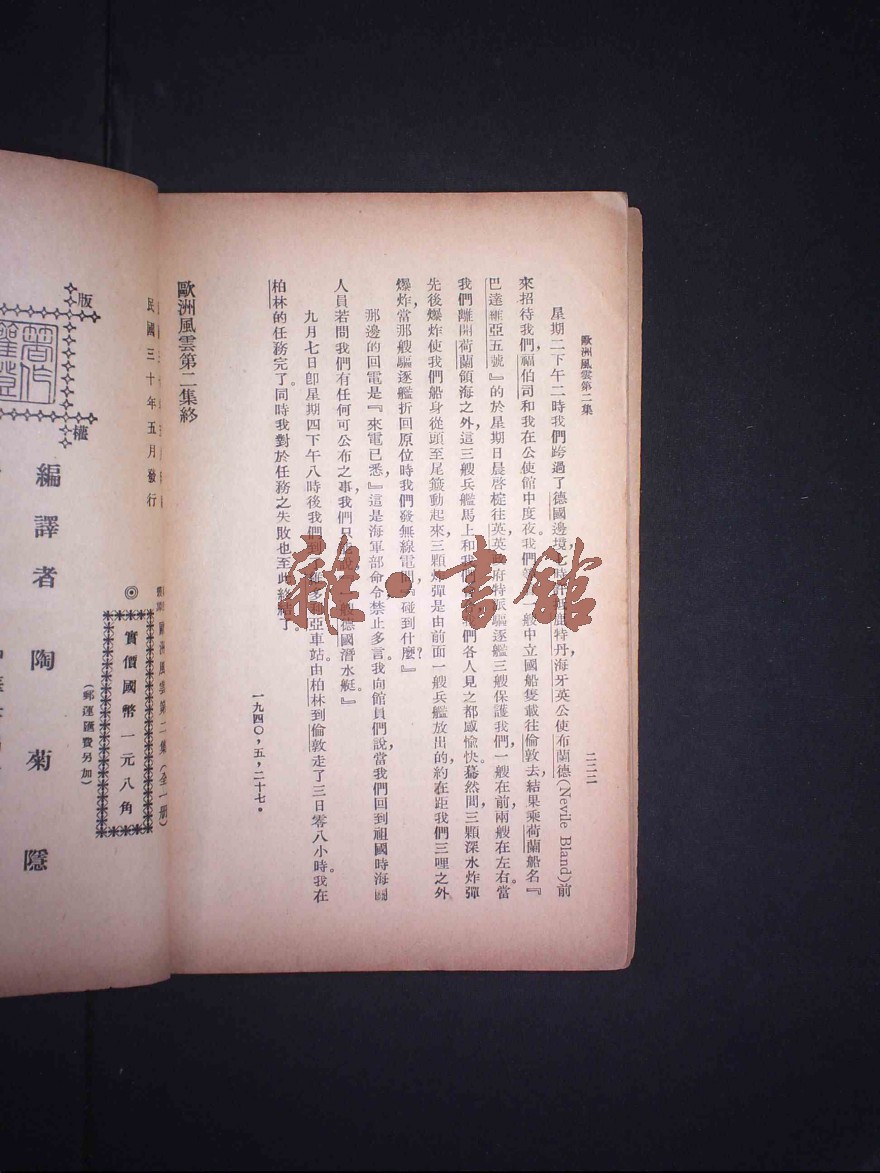 歐洲風雲第二集
二二二
星期二下午二時我們跨過了德國邊境,七時許抵鹿特丹,海牙英公使布蘭德(Nevile Bland)前
來招待我們,福伯司和我在公使館中度夜。我們等一艘中立國船隻載往倫敦去,結果乘荷蘭船名『
巴達維亞五號』的於星期日晨啓椗往英。英政府特派驅逐艦三艘保護我們,一艘在前,兩艘在左右。當
我們離開荷蘭領海之外,這三艘兵艦馬上和我們 我們各人見之都感愉快。驀然間,三顆深水炸彈
先後爆炸使我們船身從頭至尾簸動起來,三顆炸彈是由前面一艘兵艦放出的,約在距我們三哩之外
爆炸,當那艘驅逐艦折回原位時我們發無線電問,『碰到什麼?』
那邊的回電是『來電已悉,』這是海軍部命令禁止多言。我向館員們說,當我們回到祖國時海關
人員若問我們有任何可公布之事,我們只能說『一艘德國潛水艇。』
九月七日卽星期四下午八時後我們到維多利亞車站。由柏林到倫敦走了三日零八小時。我在
柏林的任務完了。同時我對於任務之失敗也至此終結了。
一九四〇,五,二十七。
歐洲風雲第二集終
版
權
民國三十年五月發行
歐洲風雲第二集(全一册)
◎
實價國幣一元八角
(郵運匯費另加)
編譯者 陶菊隱
雜·書館